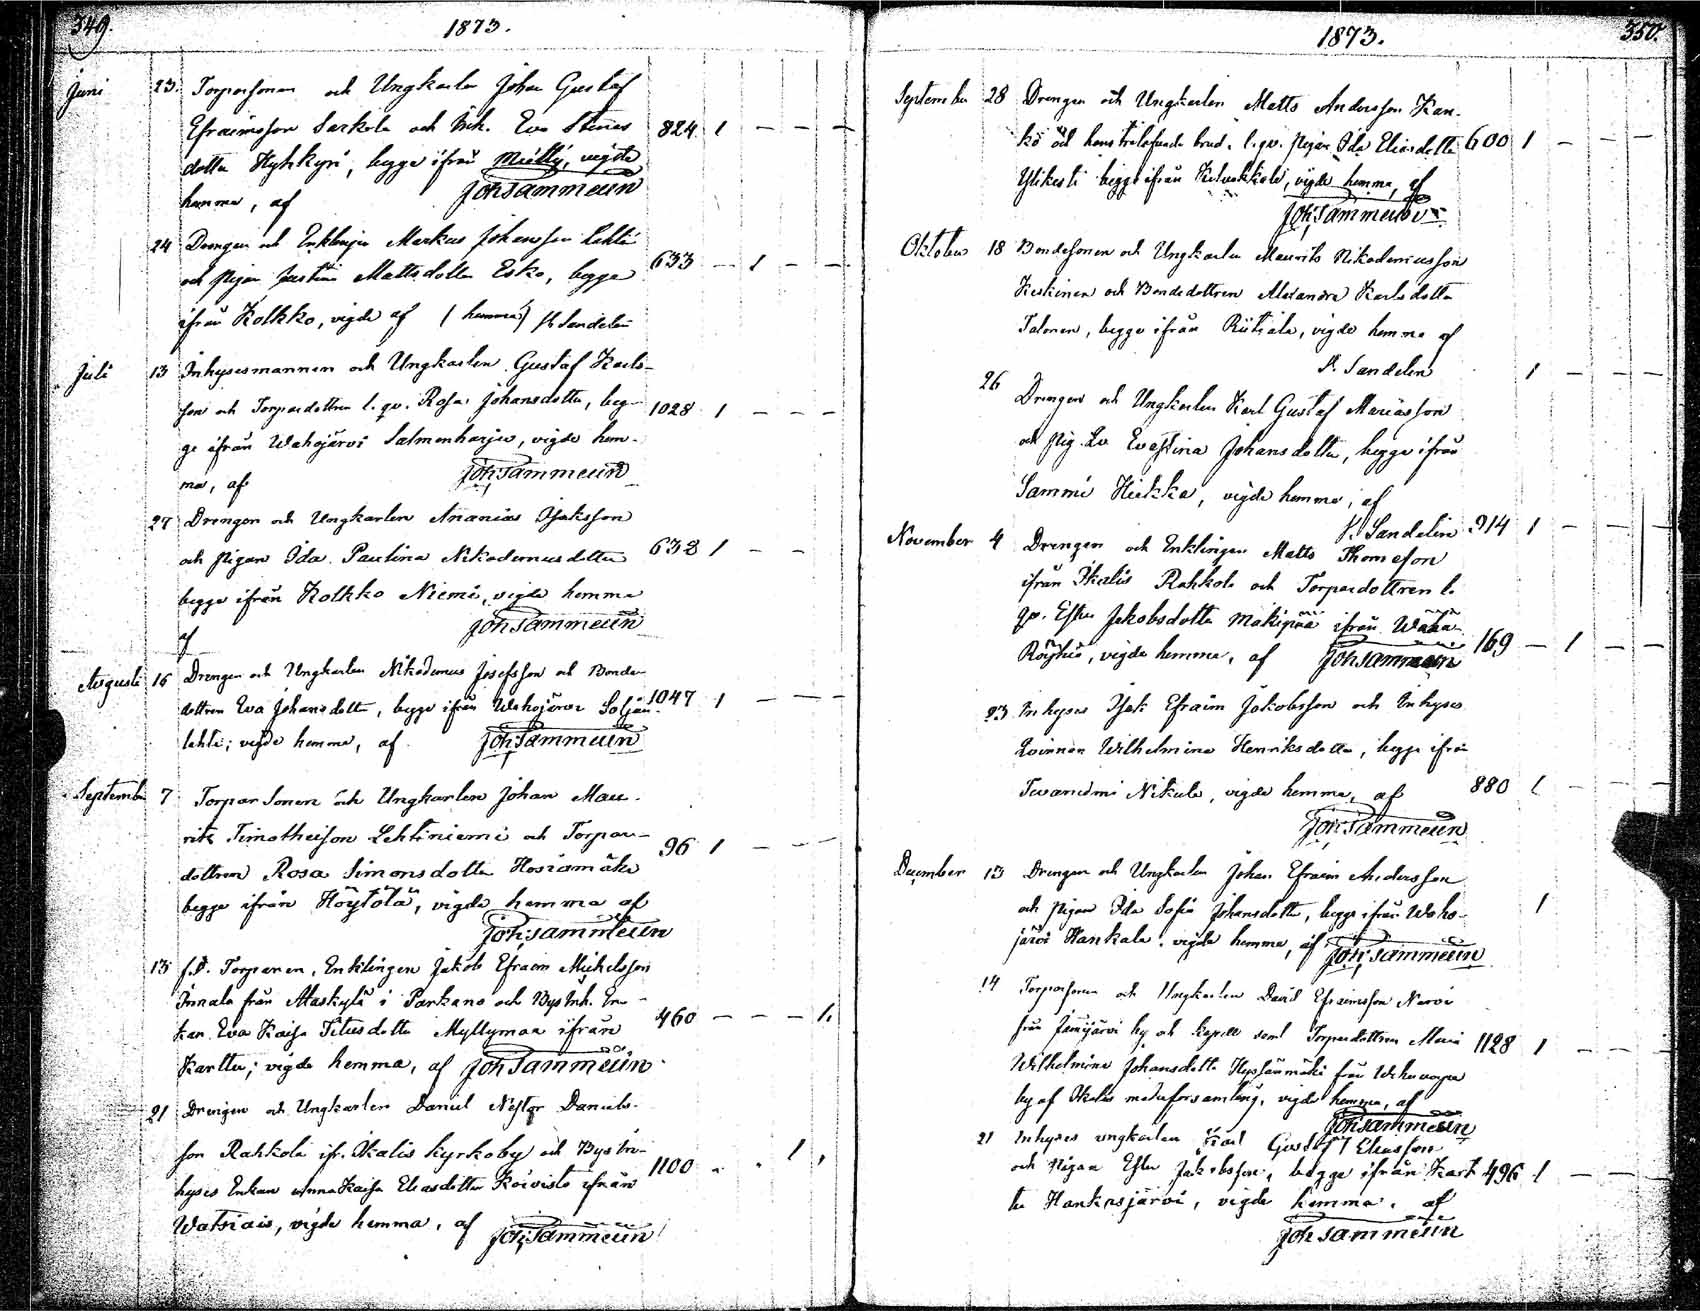 349.
1873.
Juni 23 Torparsonen och Ungkarlen Johan Gustaf
Efraimsson Sarkola och Inh. Eva Stinas 824 1 — — —
dotter Hyhkyri, begge ifrån Mieltÿ, vigde
hemma, af Joh Sammelin
24 Drengen och Enklingen Markus Johansson Lehti
och Pigan Justina Mattsdotter Esko, begge 633 — 1 — —
ifrån Kolkko, vigde af (hemma) Sandelin
Juli 13 Inhysesmannen och Ungkarlen Gustaf Karls-
son och Torpardottren l. qv. Rosa Johansdotter, beg- 1028 1 — — —
ge ifrån Wahojärvi Salmenharju, vigde hem-
ma, af Joh Sammelin
27 Drengen och Ungkarlen Ananias Isaksson
och Pigan Ida Paulina Nikodemusdotter 632 1 — —
begge ifrån Kolkko Niemi, vigde hemma
af Joh Sammelin
Augusti 16 Drengen och Ungkarlen Nikodemus Josefsson och Bonde-
dottren Eva Johansdotter, begge ifrån Wahojärvi 1047 1 — — —
lahti; vigde hemma, af Joh Sammelin
September 7 Torparsonen och Ungkarlen Johan Mau-
ritz Timotheison Lehtiniemi och Torpar- 96 1 — — —
dottren Rosa Simonsdotter Hosiamäki
begge ifrån Höytölä, vigde hemma af
Joh Sammelin
13 f.D. Torparen, Enklingen Jakob Efraim Michelsson
Innala från Alaskylä i Parkano och Bys Inh. En-
kan Eva Kaisa Titusdotter Myllymaa ifrån 460 — — — 1.
Karttu; vigde hemma, af Joh Sammelin
21 Drengen och Ungkarlen Daniel Nestor Daniels-
son Rahkola ifr. Ikalis kyrkoby och Bys In-
hyses Enkan Anna Kaisa Eliasdotter Koivisto ifrån 1100 1
Watsiais, vigde hemma, af Joh Sammelin
350.
1873.
September 28 Drengen och Ungkarlen Matts Andersson Kan-
ko och hans trolofvade brud, l. qv. Pigan Ida Eliasdotter 600 1 — — —
Ylikesti begge ifrån Kelvakkola, vigde hemma, af
Joh Sammelin
Oktober 18 Bondesonen och Ungkarlen Maurits Nikodemusson
Keskinen och Bondedottren Alexandra Karlsdotter
Talonen, begge ifrån Riitiala, vigde hemma af
Sandelin 1 — — —
26 Drengen och Ungkarlen Karl Gustaf Mariasson
och Pig. Evastina Johansdotter, begge ifrån
Sammi Hiekka, vigde hemma, af
Sandelin 914 1 — — —
November 4 Drengen och Enklingen Matts Thomeson
ifrån Ikalis Rahkola och Torpardottren l.
qv. Ester Jakobsdotter Mäkipää ifrån Wähä
Röyhiö, vigde hemma, af Joh Sammelin 169 — 1 — —
23 Inhyses Isak Efraim Jakobsson och Inhyses
Qvinnan Wilhelmina Henriksdotter, begge ifrån
Tevaniemi Nikula, vigde hemma, af 880 1 — — —
Joh Sammelin
December 13 Drengen och Ungkarlen Johan Efraim Andersson
och Pigan Ida Sofia Johansdotter, begge ifrån Waho- 1
järvi Hankala, vigde hemma, af Joh Sammelin
14 Torparsonen och Ungkarlen David Efraimsson Narvi
från Jämijärvi by och kapell samt Torpardottren Maria 1128 1 — — —
Wilhelmina Johansdotter från
by af Ikalis moderforsamling, vigde hemma, af
Joh Sammelin
21 Inhyses ungkarlen Karl Gustaf Eliasson
och Pigan Ester Jakobsson, begge ifrån Kart- 496 1 — —
tu Hankasjärvi, vigde hemma, af
Joh Sammelin